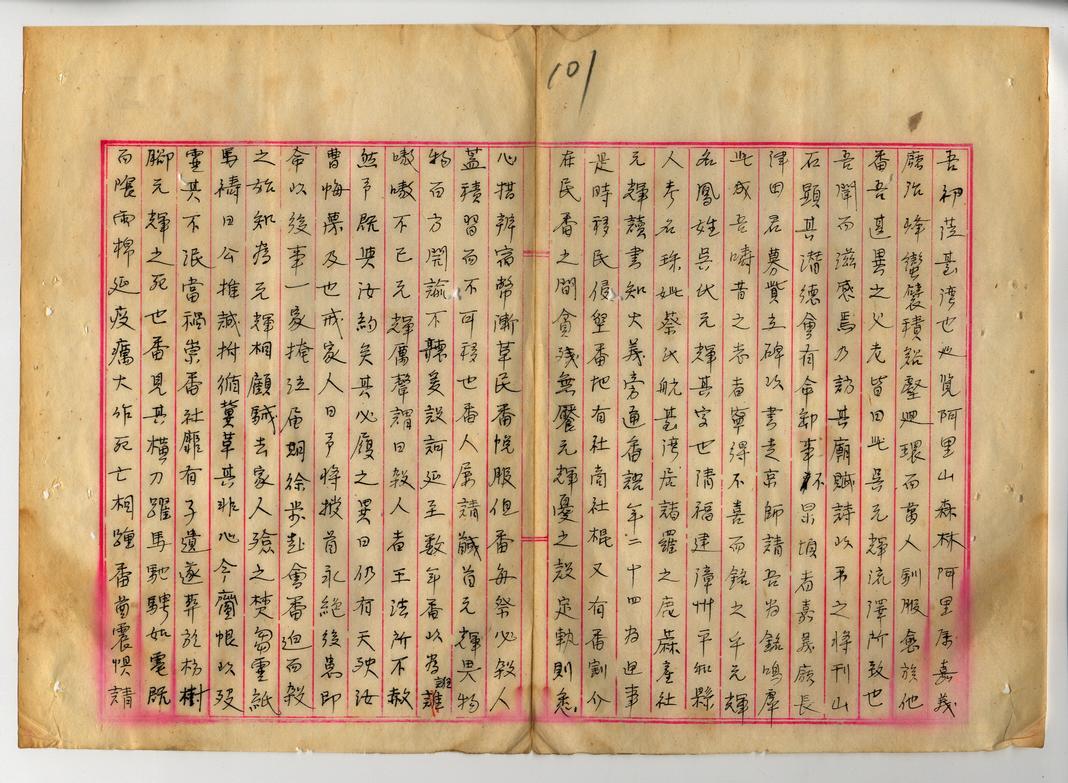 101
吾初蒞臺灣也必覽阿里山森林阿里屬嘉義
廳治峰巒襞積谿壑迴環而蕃人馴服愈於他
番吾甚異之父老皆曰此吳元輝流澤所致也
吾聞而滋感焉乃訪其廟賦詩以弔之將刊山
石顯其潛德會有命卸事不果頃者嘉義廳長
津田君募貲立碑以書走京師請吾為銘嗚摩
此成吾疇昔之志者寧得不喜而銘之乎元輝
名鳳姓吳氏元輝其字也清福建漳州平和縣
人考名珠妣蔡氏航臺灣居諸羅之鹿蔴產社
元輝讀書知大義旁通番語年二十四為通事
是時移民侵墾番地有社商社棍又有番割介
在民番之間貪殘無饜元輝憂之設定執則悉
心搭辨宿幣漸革民番悅服但番每祭必殺人
蓋積習而不可移也番人屢請馘首元輝畀物
物而方開諭不聽爰設詞延至數年番以為誑
嗷嗷不已元輝厲聲謂曰殺人者王法所不赦
然予既與汝約矣其必履之異日仍有天殃汝
曹悔慄及也戒家人曰予將授首永絕後患即
命以後事一家掩泣居期徐步赴會番迫而殺
之於知為元輝相顧駭去家人殮之焚芻靈紙
馬禱曰公推誠拊循冀革其非心今齎恨以歿
靈其不泯當禍祟番社靡有孑遺遂葬於枋樹
腳元輝之死也番見其橫刀躍馬馳騁如電既
而陰雨棉延疫癘大作死亡相踵番酋震懼請